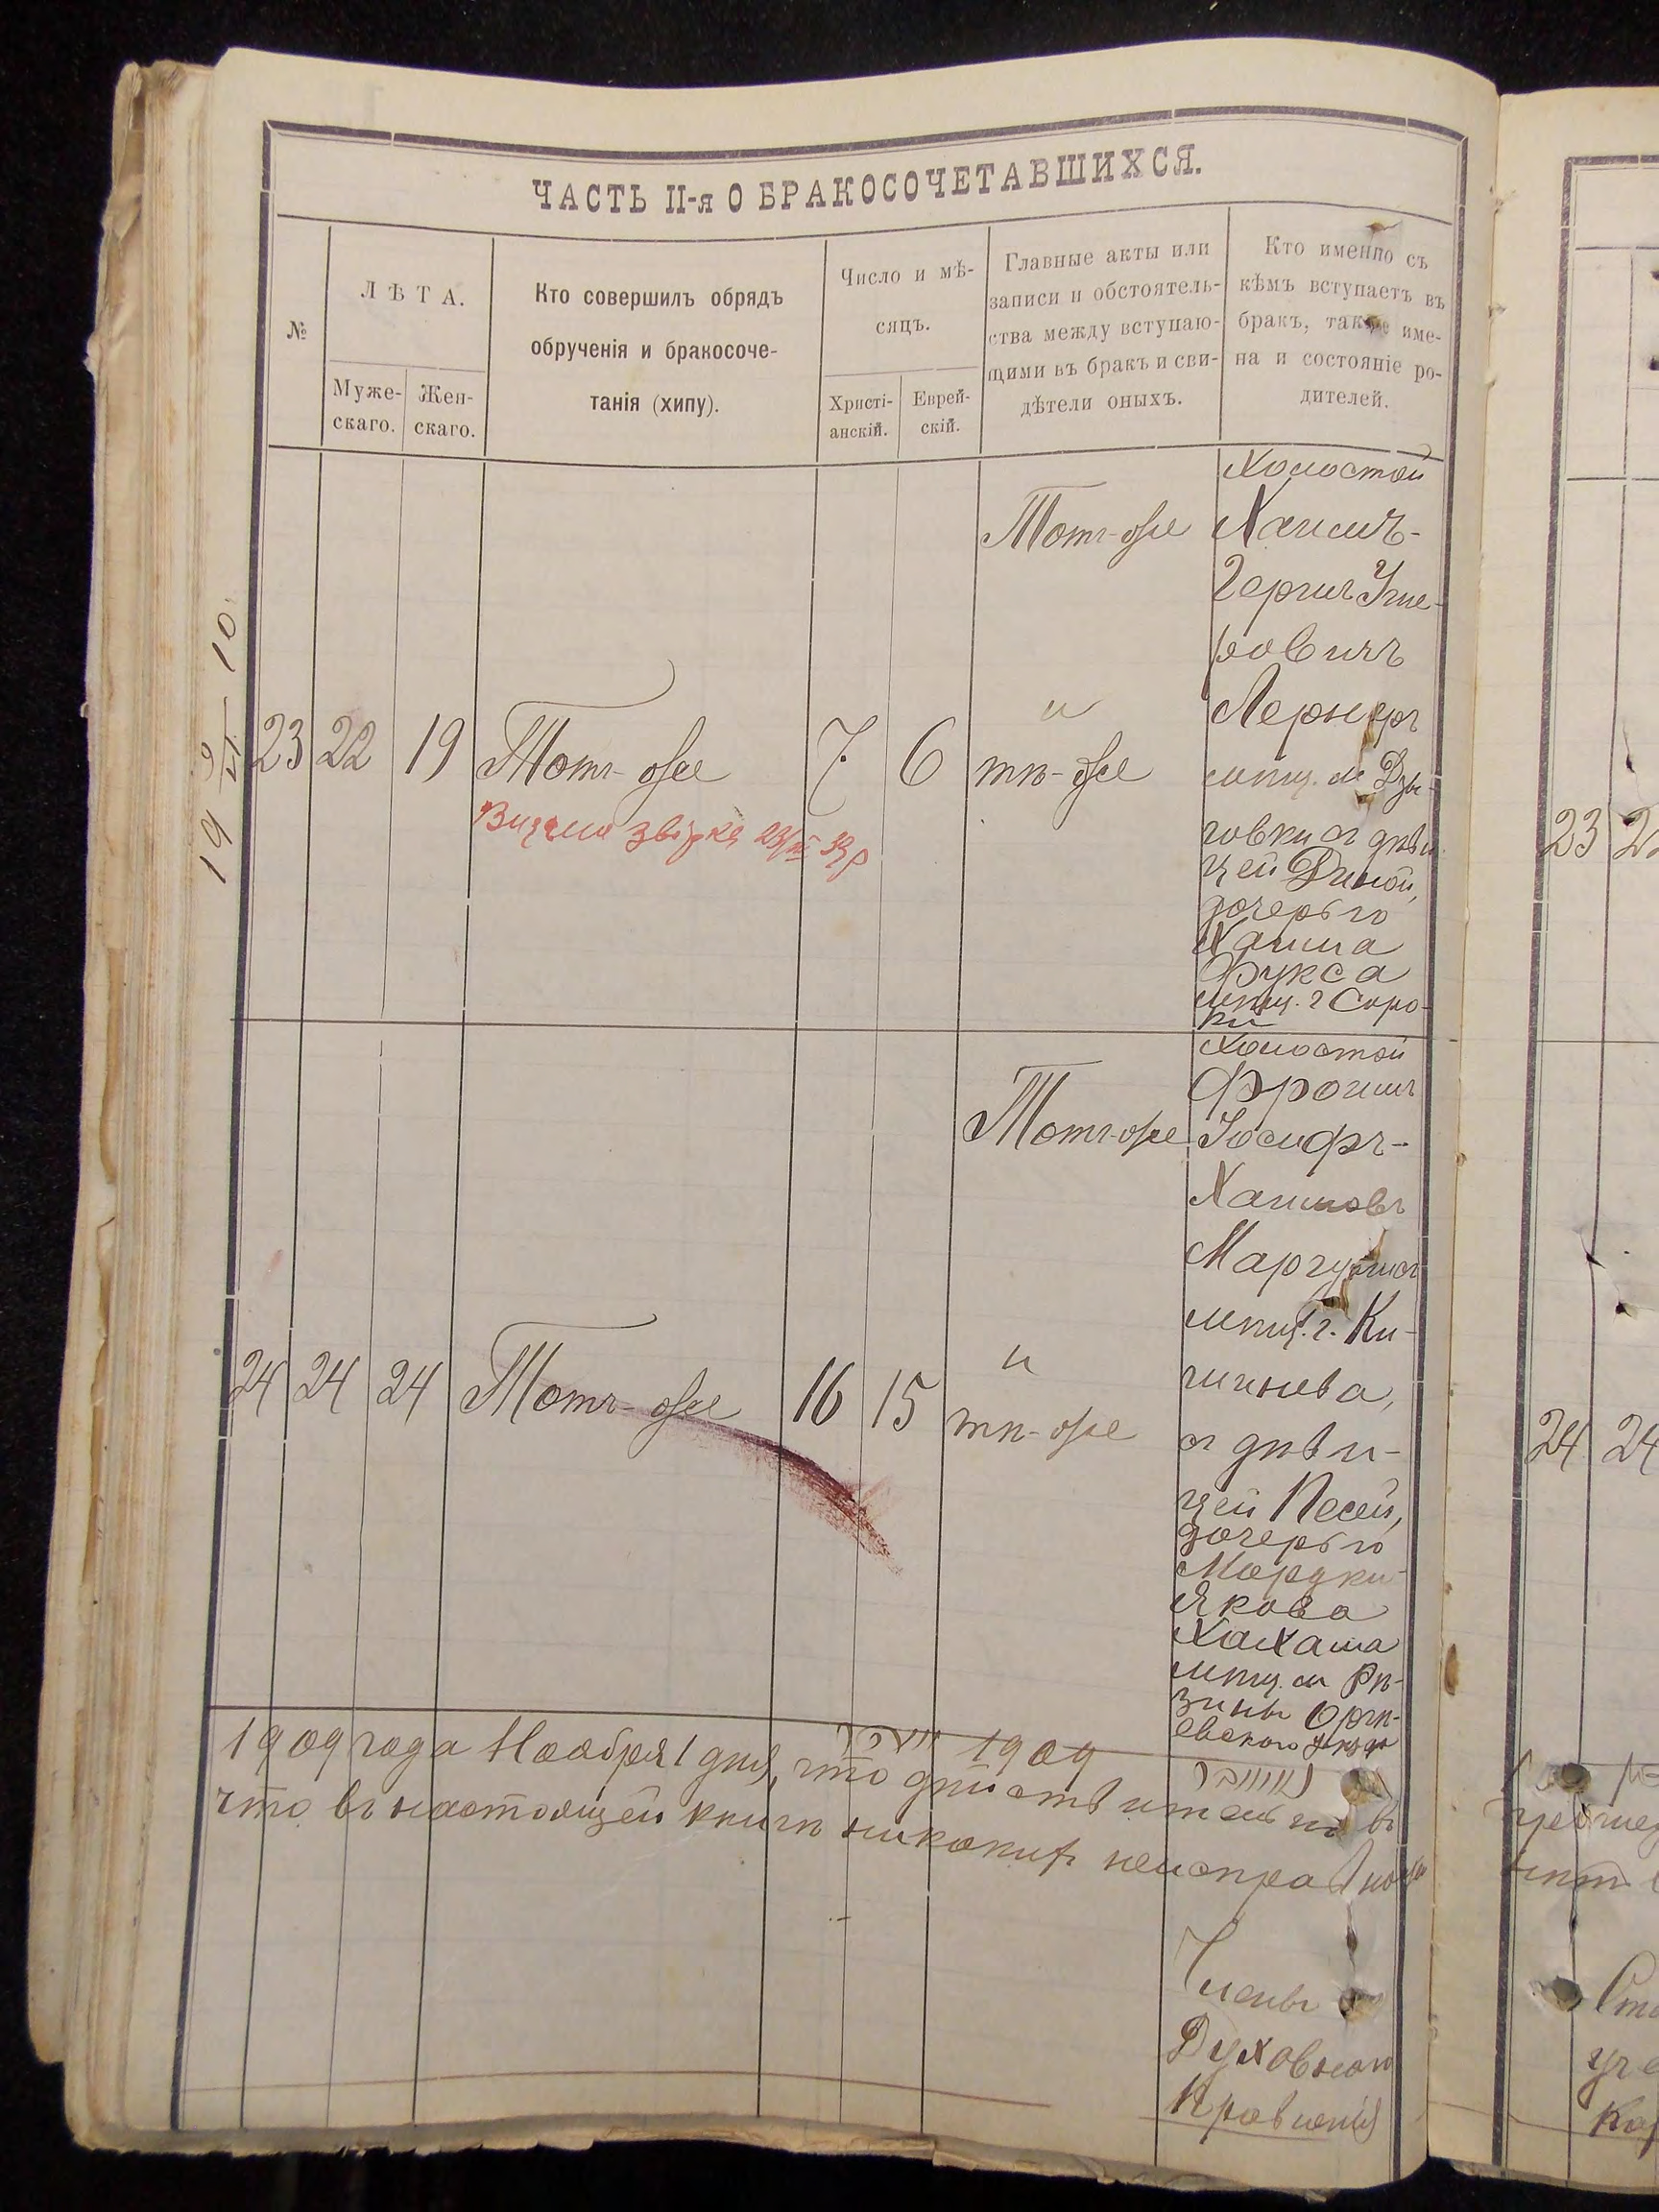 ЧАСТЬ II-я О БРАКОСОЧЕТАВШИХСЯ.
№
ЛѢТА.
Муже-
скаго.
Жен-
скаго.
Кто совершилъ обрядъ
обрученія и бракосоче-
танія (хипу).
Число и мѣ-
сяцъ.
Христі-
анскій.
Еврей-
скій.
Главные акты или
записи и обстоятель-
ства между вступаю-
щими въ бракъ и сви-
дѣтели оныхъ.
Кто именно съ
кѣмъ вступаетъ въ
бракъ, также име-
на и состояніе ро-
дителей.
23
22
19
Тотъ-же
7
6
Тотъ-же
и
тѣ-же
Холостой
Хаимъ-
Гершъ
ровичъ
Лернеръ
мѣщ. м. Дзы-
говки съ дѣви-
цей Диной,
дочерью
Хаима
Фукса
мѣщ. г. Соро-
ки
24
24
24
Тотъ-же
16
15
Тотъ-же
и
тѣ-же
Холостой
Фроимъ
Іосифъ-
Хаимовъ
Маргулисъ
мѣщ. г. Ки-
шинева,
съ дѣви-
цей Песей,
дочерью
Мордки-
Якова
мѣщ. м. Рѣ-
зины Оргѣ-
евскаго уѣзда
1909 года Ноября 1 дня, что дѣйствительно въ
1909
что въ настоящей книгѣ никакихъ неисправно
Члены
Духовнаго
Правленія
23
24
24